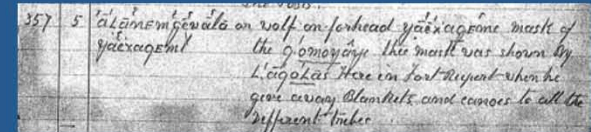 357 5 ālānEmgēvālā or wolf on forhead yāēxagEmē mask of
yāexagEml the gomoyōyē this mask was shown By
L!āqoLas Here in Fort Rupert when he
give away Blankets and canoes to all the
Different tribes